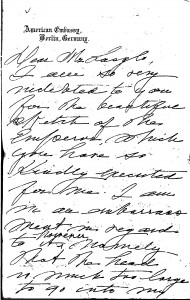 American Embassy,
Berlin, Germany.
Dear Mr
I am so very
indebted to you
for the beautiful
sketch of the
Emperor, which
you have so
kindly executed
for me. I am
in an embarrass
ment in regard
however
to it, namely
that the head
is much too large
to go into my